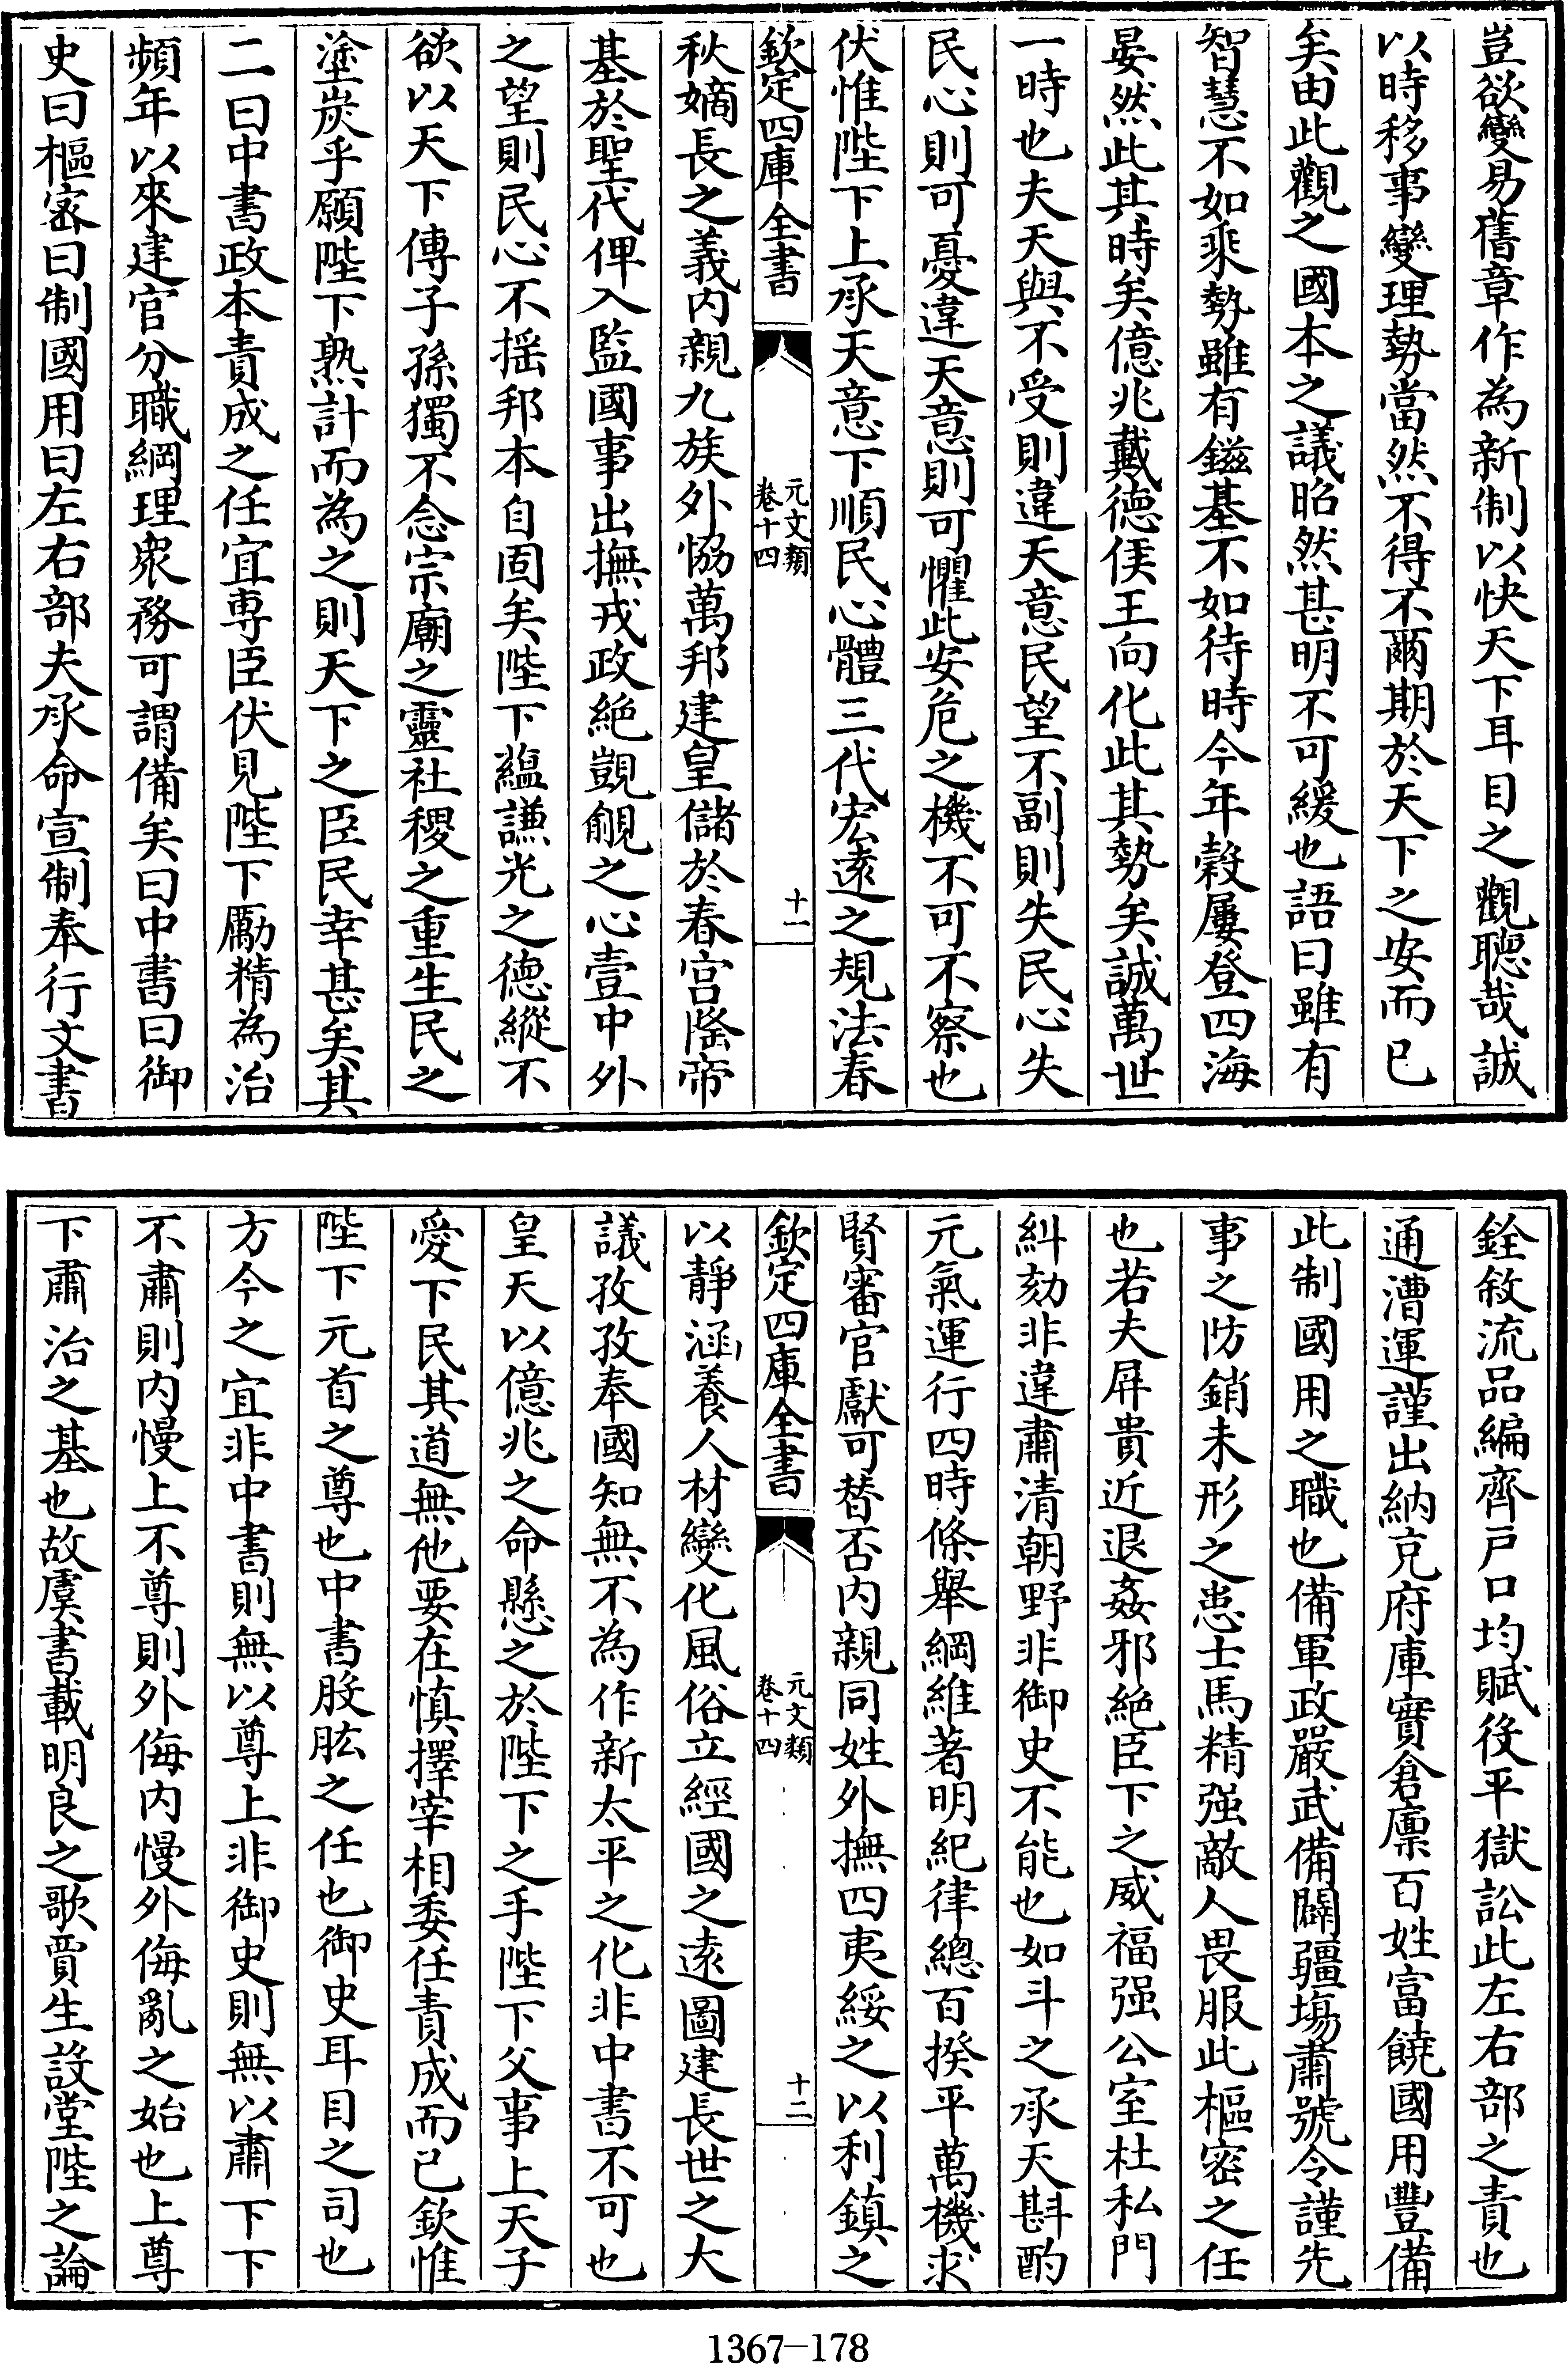 豈欲變易舊章作為新制以快天下耳目之觀聽哉誠
以時移事變理勢當然不得不爾期於天下之安而已
矣由此觀之國本之議昭然甚明不可緩也語曰雖有
智慧不如乘勢雖有鎡基不如待時今年穀屢登四海
晏然此其時矣億兆戴德侯王向化此其勢矣誠萬世
一時也夫天與不受則違天意民望不副則失民心失
民心則可憂違天意則可懼此安危之機不可不察也
伏惟陛下上承天意下順民心體三代宏遠之規法春
欽定四庫全書
元文類
卷十四
十一
秋嫡長之義内親九族外協萬邦建皇儲於春宫隆帝
基於聖代俾入監國事出撫戎政絶覬覦之心壹中外
之望則民心不揺邦本自固矣陛下蘊謙光之德縱不
欲以天下傳子孫獨不念宗廟之靈社稷之重生民之
塗炭乎願陛下熟計而為之則天下之臣民幸甚矣其
二曰中書政本責成之任宜専臣伏見陛下勵精為治
頻年以來建官分職綱理衆務可謂備矣曰中書曰御
史曰樞宻曰制國用曰左右部夫承命宣制奉行文書
銓敘流品編齊戸口均賦役平獄訟此左右部之責也
通漕運謹出納充府庫實倉廪百姓富饒國用豐備
此制國用之職也備軍政嚴武備闢疆埸肅號令謹先
事之防銷未形之患士馬精强敵人畏服此樞密之任
也若夫屏貴近退姦邪絶臣下之威福强公室杜私門
糾劾非違肅清朝野非御史不能也如斗之承天斟酌
元氣運行四時條舉綱維著明紀律總百揆平萬機求
賢審官獻可替否内親同姓外撫四夷綏之以利鎮之
欽定四庫全書
元文類
卷十四
十二
以靜涵養人材變化風俗立經國之遠圖建長世之大
議孜孜奉國知無不為作新太平之化非中書不可也
皇天以億兆之命懸之於陛下之手陛下父事上天子
愛下民其道無他要在慎擇宰相委任責成而已欽惟
陛下元首之尊也中書股肱之任也御史耳目之司也
方今之宜非中書則無以尊上非御史則無以肅下下
不肅則内慢上不尊則外侮内慢外侮亂之始也上尊
下肅治之基也故虞書載明良之歌賈生設堂陛之論
1367-178